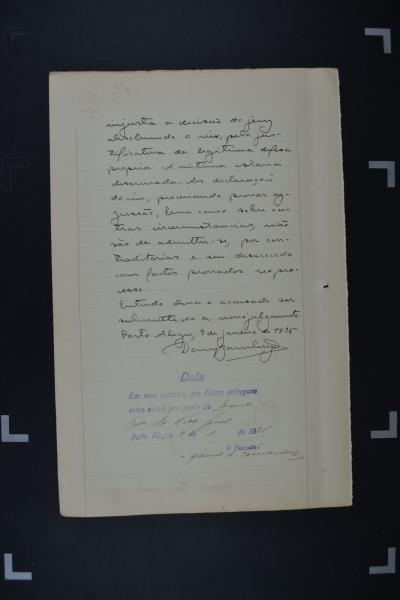 injusta a decisão do jury
absolvendo o réu, pela jus-
tificativa da legitima defesa
propria. A victima estava
desarmada. As declarações
do réu, procurando provar ag-
gressão, bem como sobre ou-
tras circumstancias, não
são de admittir-se, por con-
tradictorias e em desaccordo
com factos provados no pro-
cesso.
Entendo deva o accusado ser
submettido a novo julgamento.
Porto Alegre, 9 de janeiro de 1935
Data
Em meu cartorio, me foram entregues
estes autos por parte do
Porto Alegre, 9 de 1 de 1935
O Escrivão
Fernandes